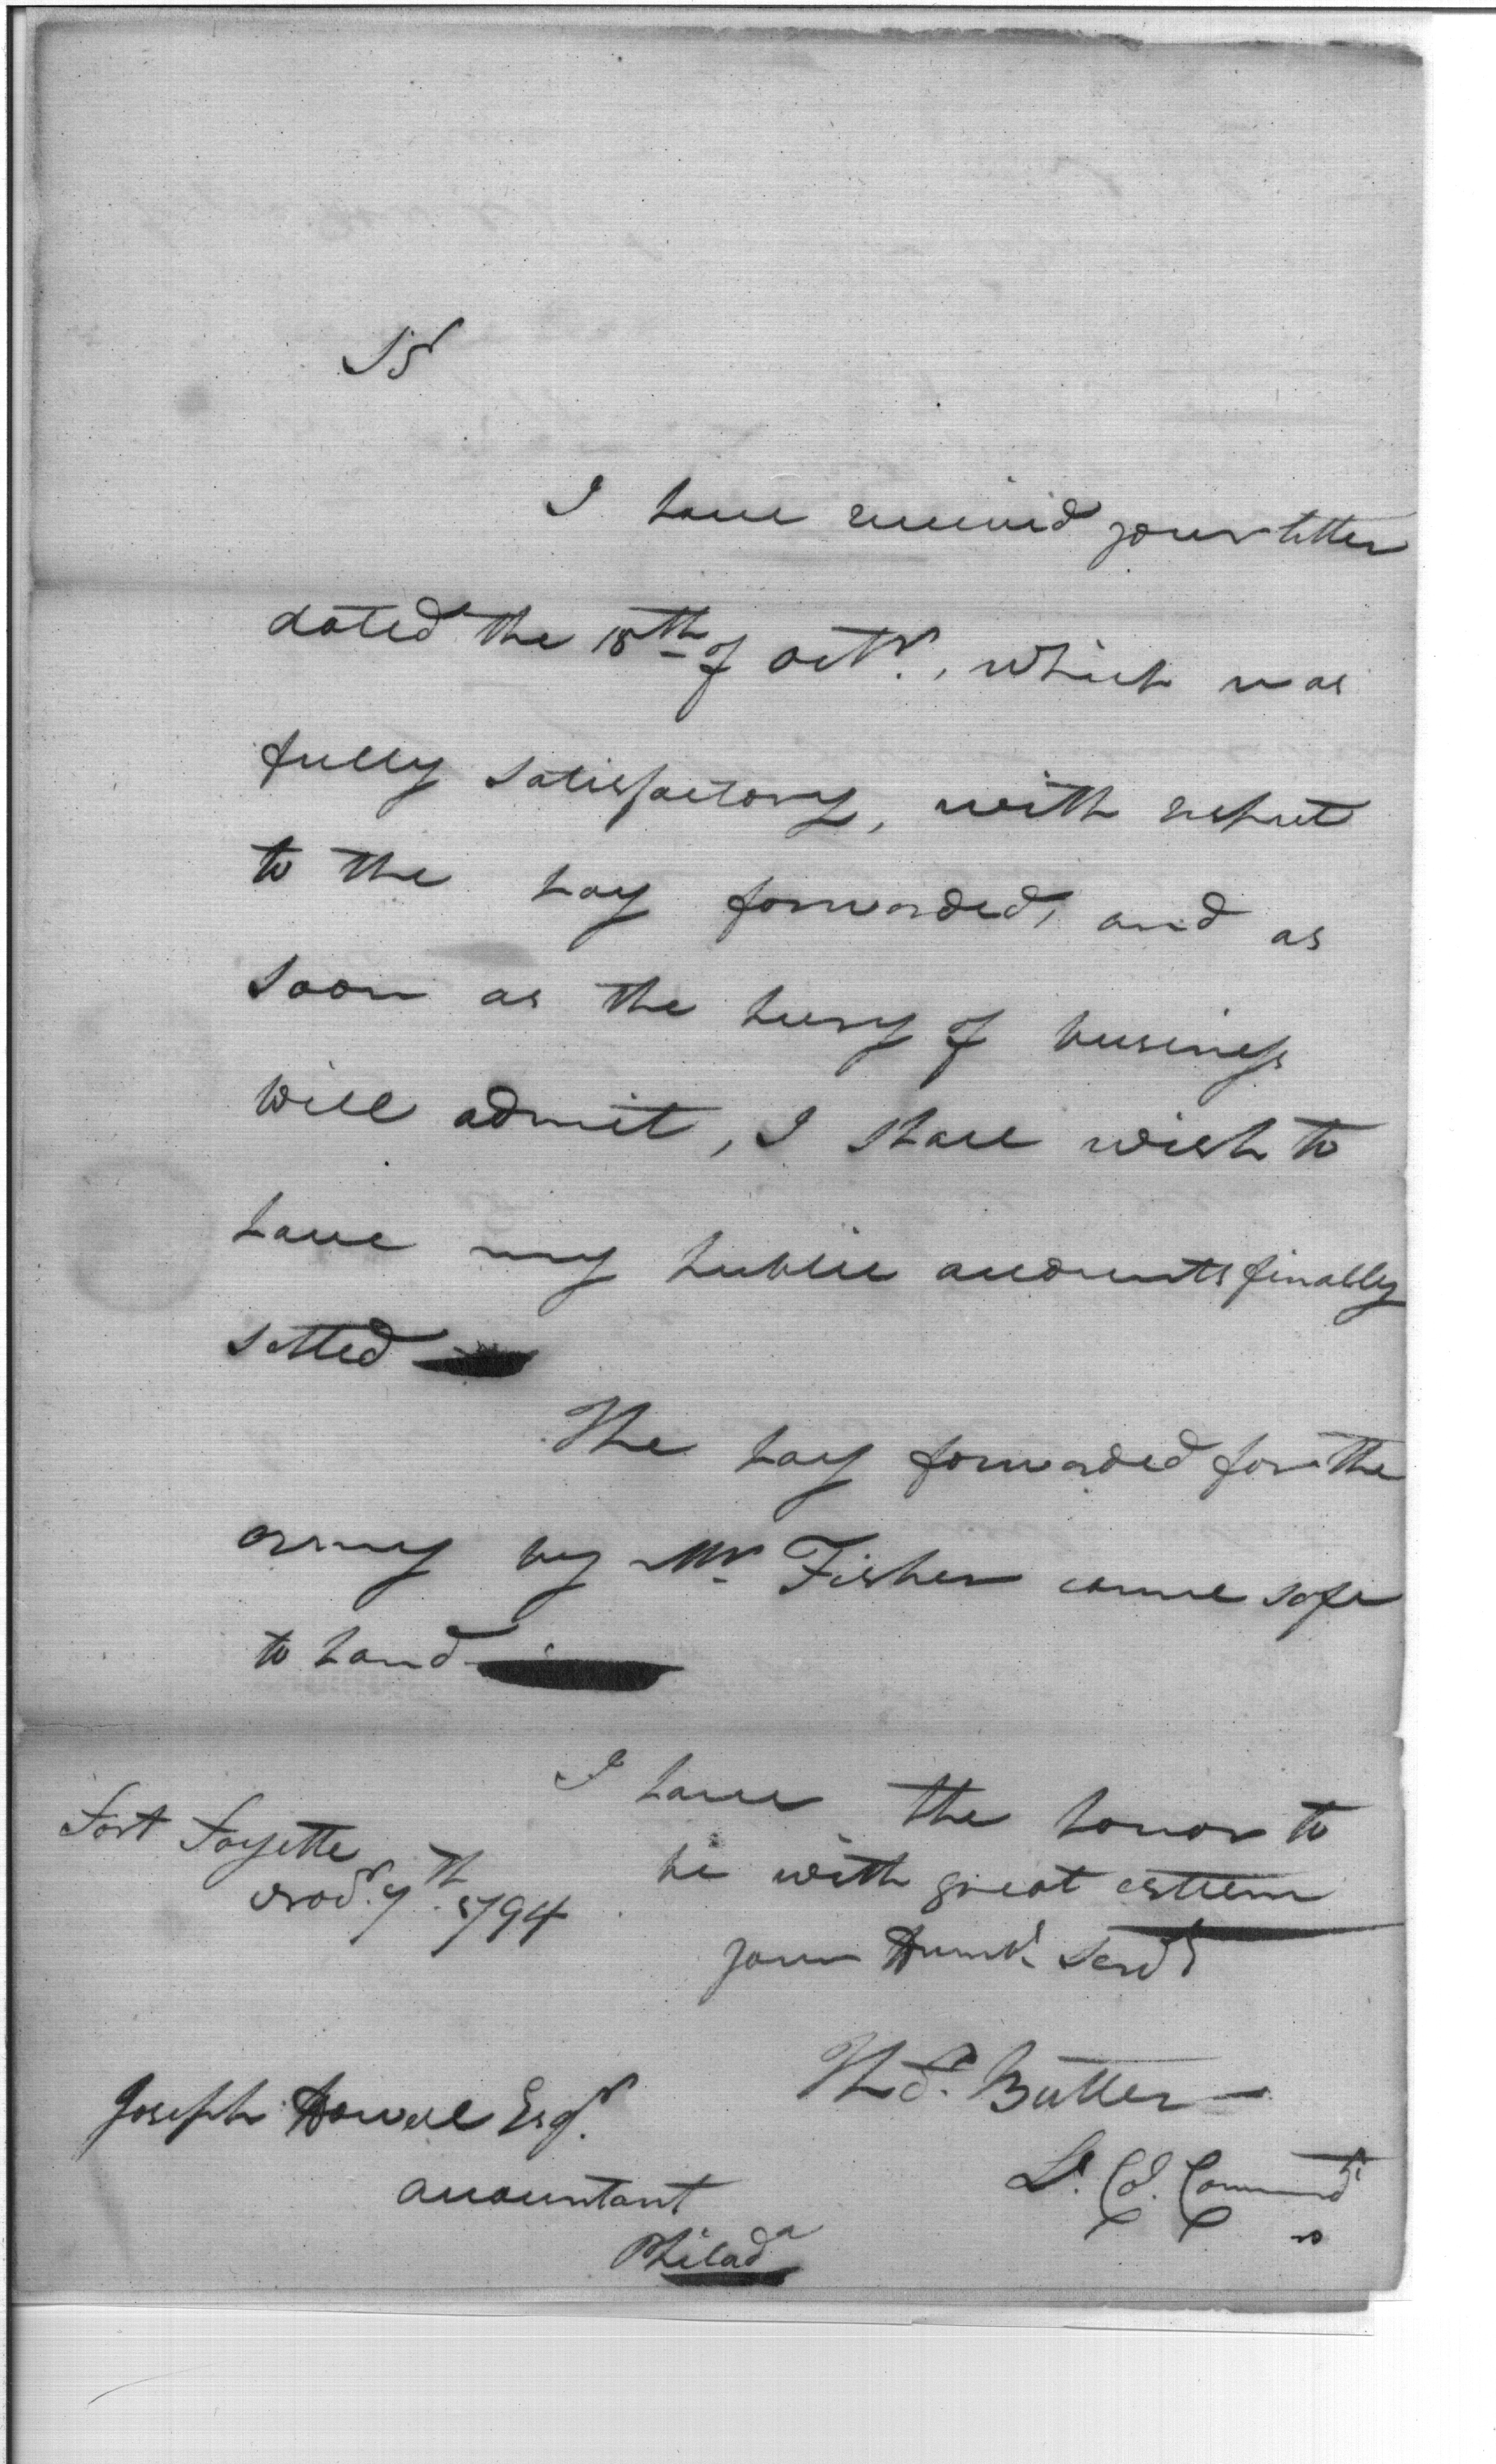 Sr
I have received your letter
dated the 18th of Octr., which was
fully satisfactory, with respect
to the pay forwarded, and as
soon as the hurry of business
will admit, I shall wish to
have my public accounts finally
settled
The pay forwarded for the
army by Mr Fisher came safe
to hand
I have the honor to
be with great esteem
your Humbl. Servt
Fort Fayette
Novr. 7th 1794
Thos. Butler
Lt. Col. Commandt
Joseph Howell Esqr.
accountant
Philada